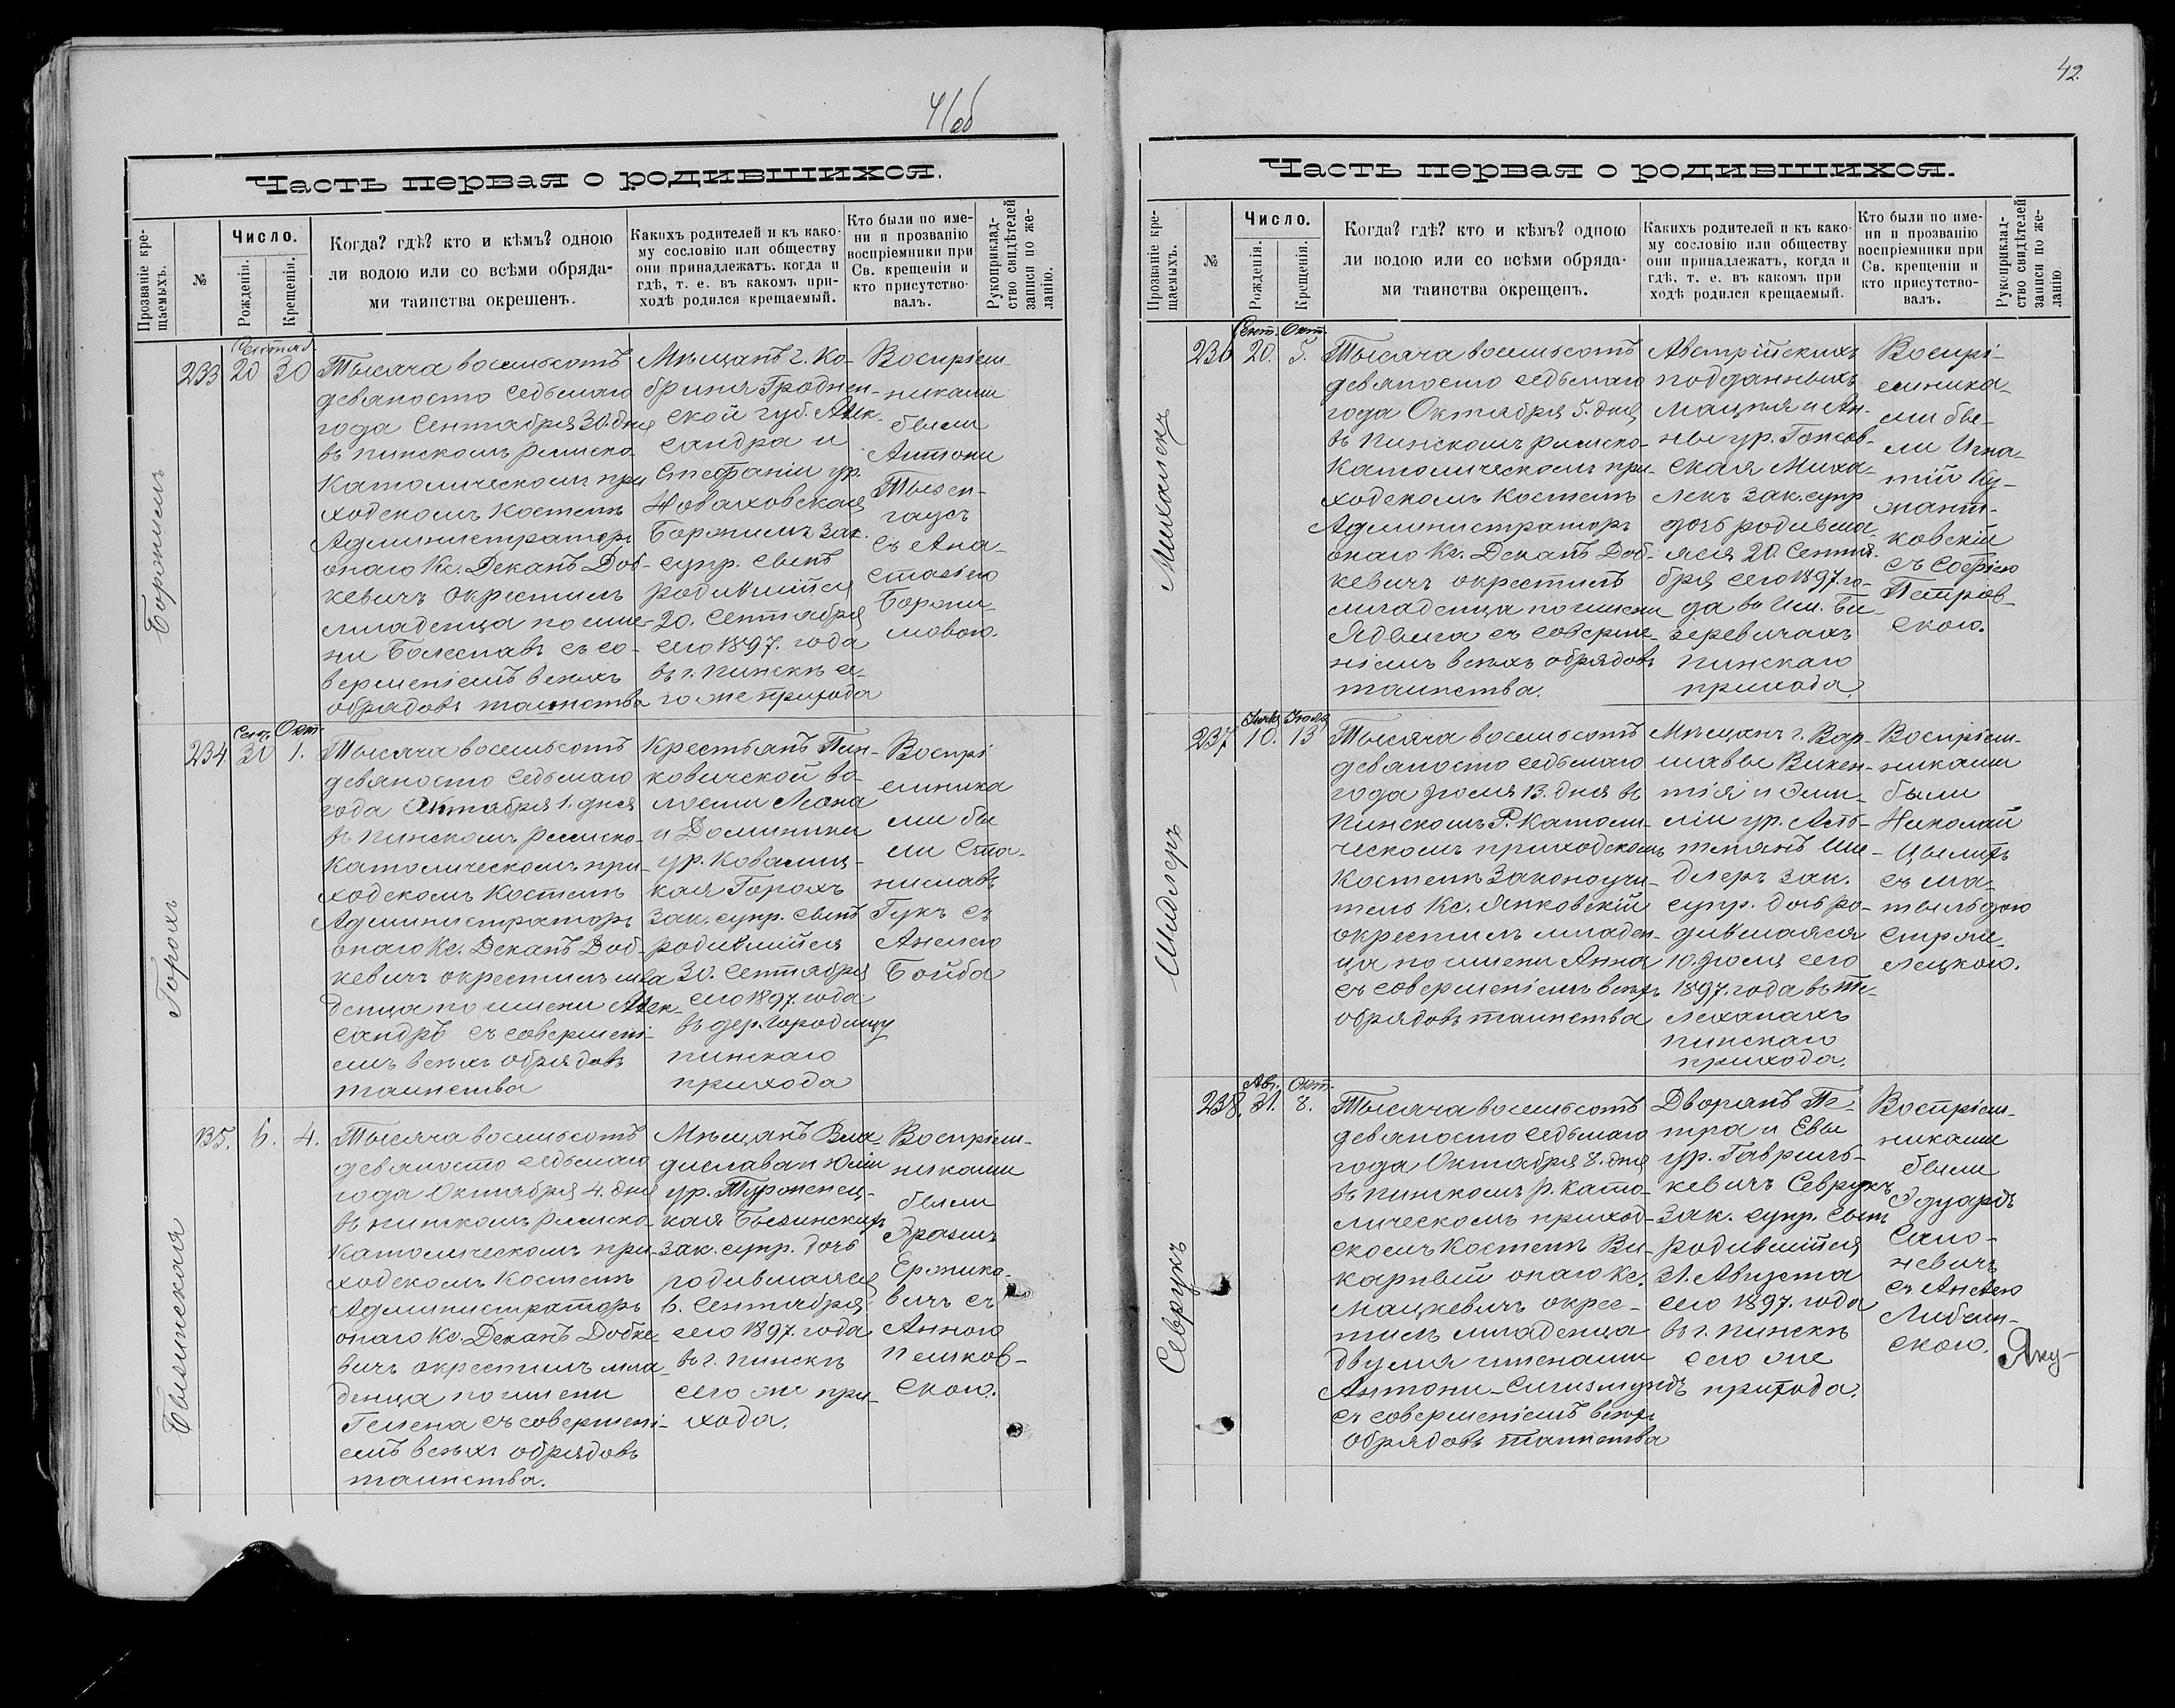 41об
Часть первая о родившихся.
Прозваніе кре-
щаемыхъ.
№
Число.
Рожденія.
Крещенія.
Когда? гдѣ? кто и кѣмъ? одною
ли водою или со всѣми обряда-
ми таинства окрещенъ.
Какихъ родителей и къ како-
му сословію или обществу
они принадлежатъ. когда и
гдѣ, т. е. въ какомъ при-
ходѣ родился крещаемый.
Кто были по име-
ни и прозванію
воспріемники при
Св. крещеніи и
кто присутство-
валъ.
Рукоприклад-
ство свидѣтелей
записи по же-
ланію.
Боржимъ
233
Сентяб.
20
30
Тысяча восемьсотъ
девяносто седьмаго
года Сентября 30. дня
въ пинскомъ римско
католическомъ при
ходскомъ костелѣ
Администраторъ
онаго Кс. Деканъ Доб-
кевичъ окрестилъ
младенца по име-
ни Болеславъ съ со-
вершеніемъ всѣхъ
обрядовъ таинства
Мѣщанъ г. Ко-
брина Гроднен-
ской губ. Алек-
сандра и
Стефаніи ур.
Новаховская
Боржимъ зак.
супр. сынъ
родившійся
20. Сентября
сего 1897. года
въ г. Пинскѣ се-
го же прихода
Воспріем-
никами
были
Антони
Тызен-
гаузъ
съ Ана-
стазіею
Боржи-
мовою.
Горохъ
234.
Сент.
30
Окт.
1.
Тысяча восемьсотъ
девяносто седьмаго
года Октября 1. дня
въ пинскомъ римско-
католическомъ при-
ходскомъ костелѣ
Администраторъ
онаго Кс. Деканъ Доб-
кевичъ окрестилъ мла
денца по имени Алек-
сандръ съ совершені-
емъ всѣхъ обрядовъ
таинства
Крестьянъ Пин-
ковичской во-
лости Леона
и Доминики
ур. Ковалиц-
кая Горохъ
зак. супр. сынъ
родившійся
30. Сентября
сего 1897. года
въ дер. Городищу
пинскаго
прихода
Воспрі
емника
ми бы
ли Ста-
ниславъ
Гукъ съ
Анелею
Бойба
Бызинская
135.
6.
4.
Тысяча восемьсотъ
девяносто седьмаго
года Октября 4. дня
въ пинскомъ римско
католическомъ при-
ходскомъ костелѣ
Администраторъ
онаго Кс. Деканъ Добке
вичъ окрестилъ мла-
денца по имени
Гелена съ совершені-
емъ всѣхъ обрядовъ
таинства.
Мѣщанъ Вла-
дислава и Юліи
ур. Тыроженец-
кая Бызинскихъ
зак. супр. дочь
родившаяся
6. Сентября
сего 1897. года
въ г. Пинскѣ
сего же при-
хода.
Воспріем-
никами
были
Эразмъ
Ержико-
вичъ съ
Анною
Пешков-
скою.
42.
Часть первая о родившихся.
Прозваніе кре-
щаемыхъ.
№
Число.
Рожденія.
Крещенія.
Когда? гдѣ? кто и кѣмъ? одною
ли водою или со всѣми обряда-
ми таинства окрещенъ.
Какихъ родителей и къ како-
му сословію или обществу
они принадлежатъ, когда и
гдѣ, т. е. въ какомъ при
ходѣ родился крещаемый.
Кто были по име-
ни и прозванію
воспріемники при
Св. крещеніи и
кто присутство-
валъ.
Рукоприклад-
ство свидѣтелей
записи по же-
ланію.
Михалекъ
236
Сент.
20.
Окт.
5.
Тысяча восемьсотъ
девяносто седьмаго
года Октября 5. дня
въ пинскомъ римско-
католическомъ при-
ходскомъ костелѣ
Администраторъ
онаго Кс. Деканъ Доб-
кевичъ окрестилъ
младенца по имени
Ядвига съ соверше-
ніемъ всѣхъ обрядовъ
таинства.
Австрійскихъ
подданныхъ
Мацѣя и Ан-
ны ур. Гонсов-
ская Миха-
лекъ зак. супр
дочь родивша-
яся 20. Сентя-
бря сего 1897. го-
да въ им. Ви-
зеревичахъ
пинскаго
прихода.
Воспрі-
емника-
ми бы-
ли Игна-
тій Ку-
жант-
ковскій
съ Софіею
Петров-
скою.
Шидлеръ
237
Іюля
10.
Іюля
13
Тысяча восемьсотъ
девяносто седьмаго
года Іюля 13. дня въ
Пинскомъ Р. Католи-
ческомъ приходскомъ
Костелѣ Законоучи-
тель Кс. Янковскій
окрестилъ младен-
ца по имени Анна
съ совершеніемъ всѣхъ
обрядовъ таинства
Мѣщанъ г. Вар-
шавы Викен-
тія и Эми-
ліи ур. Аль-
тманъ Ши-
длеръ зак.
супр. дочь ро-
дившаяся
10. Іюля сего
1897. года въ Те-
леханахъ
пинскаго
прихода.
Воспріем-
никами
были
Николай
Цылихъ
съ Ма-
тыльдою
Стрже-
лецкою.
Севрукъ
238.
Авг.
31.
Окт.
8.
Тысяча восемьсотъ
девяносто седьмаго
года Октября 8. дня
въ пинскомъ р. като-
лическомъ приход-
скомъ костелѣ Ви-
карный онаго Кс.
Мацкевичъ окрес-
тилъ младенца
двумя именами
Антони-Сигизмундъ
съ совершеніемъ всѣхъ
обрядовъ таинства
Дворянъ Пе-
тра и Евы
ур. Гаврил-
кевичъ Севрукъ
зак. супр. сынъ
родившійся
31. Августа
сего 1897. года
въ г. Пинскѣ
сего же
прихода.
Воспріем-
никами
были
Эдуардъ
Сапо-
невичъ
съ Анелею
Либчин-
скою.
Яку-